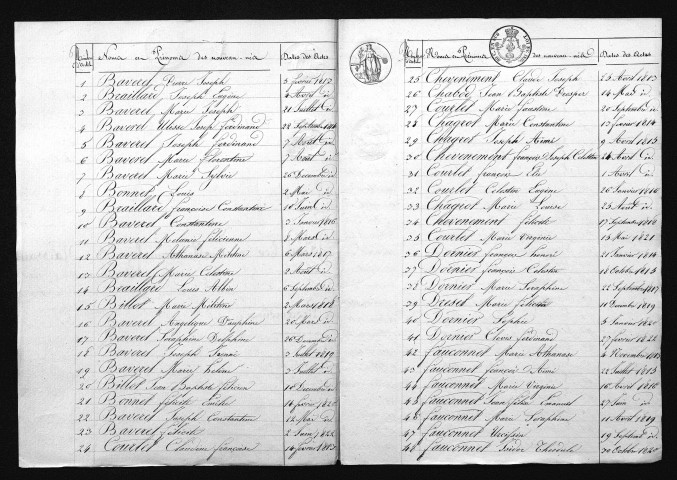 Noms et Prénoms des nouveau-nés Dates des Actes
1 Baverel Pierre Joseph 3 février 1813
2 Beaillard Joseph Eugène
3 Baverel Marie Joseph 21 Juillet di
4 Baverel Ulisse Josep ferdinand 22 Septembre
5 Baverel Joseph ferdinand 7 Avril di
6 Baverel Marie florentine 7 Aout di
7 Baverel Marie Sylvie 26 Decembre di
8 Bonnet Louis 2 Mai di
9 Beaillard françoise Constantine 10 Juin di
10 Baverel Constantine 3 Janvier 1816
11 Baverel Mélanie félicienne 8 Mars di
12 Baverel Athanase Modeste 6 Mars 1817
13 Baverel Marie Célestine 2 Avril di
14 Beaillard Louis Albin 6 Septembre di
15 Billot Marie Modeste 2 Mars 1818
16 Baverel Angelique Dauphine 20 Mars di
17 Baverel Séraphine Delphine 26 Decembre di
18 Baverel Joseph 3 Juillet 1819
19 Baverel Marie helene 3 Juillet di
20 Billot Jean Baptiste félicien 10 Decembre di
21 Bonnet félicité Emilie 14 février
22 Baverel Joseph Constantin 12 Mai di
23 Baverel 2 Juin
24 Courlet Claudine françoise 14 février 1813
Noms et Prénoms des nouveau-nés Dates des Actes
25 Chevenement Claude Joseph 25 Avril 1813
26 Chabod Jean Baptiste Prosper 14 Mai di
27 Courlet Marie Faustine 20 Septembre di
28 Chagrot Marie Constantine 13 février 1814
29 Chagrot Joseph Aimé 9 Avril 1815
30 Chevenement françois Joseph Célestin 24 Avril di
31 Courlet françois Elie 1 Avril di
32 Courlet Célestin Eugène 26 Janvier 1816
33 Chagrot Marie Louise 25 Aout di
34 Chevenement félicité 17 Septembre 1818
35 Courlet Marie Virginie 15 Mai 1821
36 Dornier francois honoré 21 Janvier 1814
37 Dornier françois Célestin 18 Octobre 1815
38 Dornier Marie Séraphine 22 Septembre 1817
39 Dresel Marie félicité 11 Decembre 1819
40 Dornier Sophie 5 Janvier 1820
41 Dornier Clovis ferdinand 27 février 1822
42 fauconnet Marie Athanase 4 Novembre 1813
43 fauconnet françois Aimé 22 Juillet 1815
44 fauconnet Marie Virginie 16 Avril 1816
45 fauconnet Jean félix Emanuel 27 Juin di
46 fauconnet Marie Séraphine 11 Avril 1819
47 fauconnet 19 Septembre di
48 fauconnet 30 Octobre